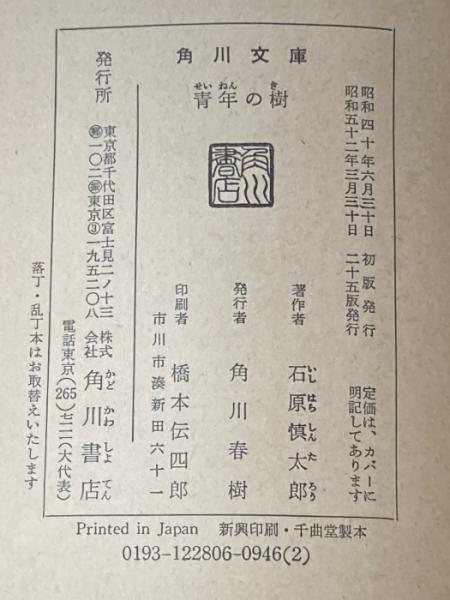 角川文庫
青年の樹
せいねん き
角川書店
昭和四十年六月三十日 初版発行
昭和五十二年三月三十日 二十五版発行
定価は、カバーに
明記してあります
著作者 石原慎太郎
いしはらしんたろう
発行者 角川春樹
印刷者 橋本伝四郎
市川市湊新田六十一
発行所
株式会社 角川書店
かどかわしょてん
東京都千代田区富士見二ノ十三
〒一〇二 振東京③一九五二〇八
電話東京(265)七一一一(大代表)
落丁・乱丁本はお取替えいたします
Printed in Japan 新興印刷・千曲堂製本
0193-122806-0946(2)